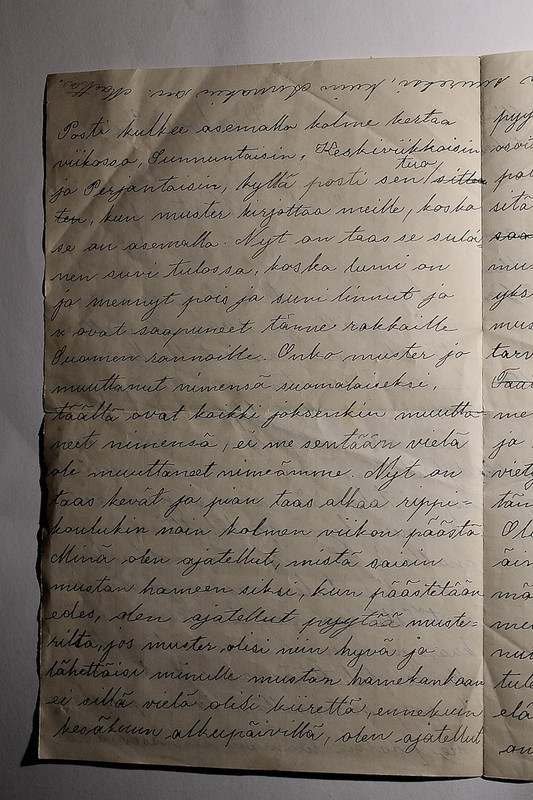 suureksi, kuin Annakin on. Maltta.
Posti kulkee asemalla kolme kertaa
viikossa, Sunnuntaisin, Keskiviikkoisin
tuo
ja Perjantaisin, kyllä posti sen sitten
ten, kun muster kirjottaa meille, koska
se on asemalla. Nyt on taas se sulo
nen suvi tulossa, koska lumi on
jo mennyt pois ja suvi linnut jo
ovat saapuneet tänne rakkaille
Suomen rannoille. Onko muster jo
muuttanut nimensä suomalaiseksi,
täältä ovat kaikki joksenkin muutta
neet nimensä, ei me sentään vielä
ole muuttaneet nimeämme. Nyt on
taas kevät ja pian taas alkaa rippi=
koulukin noin kolmen viikon päästä.
Minä olen ajatellut, mistä saisin
mustan hameen siksi, kun päästetään
edes, olen ajatellut pyytää muste=
rilta, jos muster olisi niin hyvä ja
lähettäisi minulle mustan hamekankaan
ei sillä vielä olisi kiirettä, ennekuin
kesäkuun alkupäivillä, olen ajatellut
pyy
osoi
pal
sitä
saa
muu
yks
mus
tarv
Taa
me
ja
viety
tän
Ol
äin
mä
me
nuu
tule
elä
on